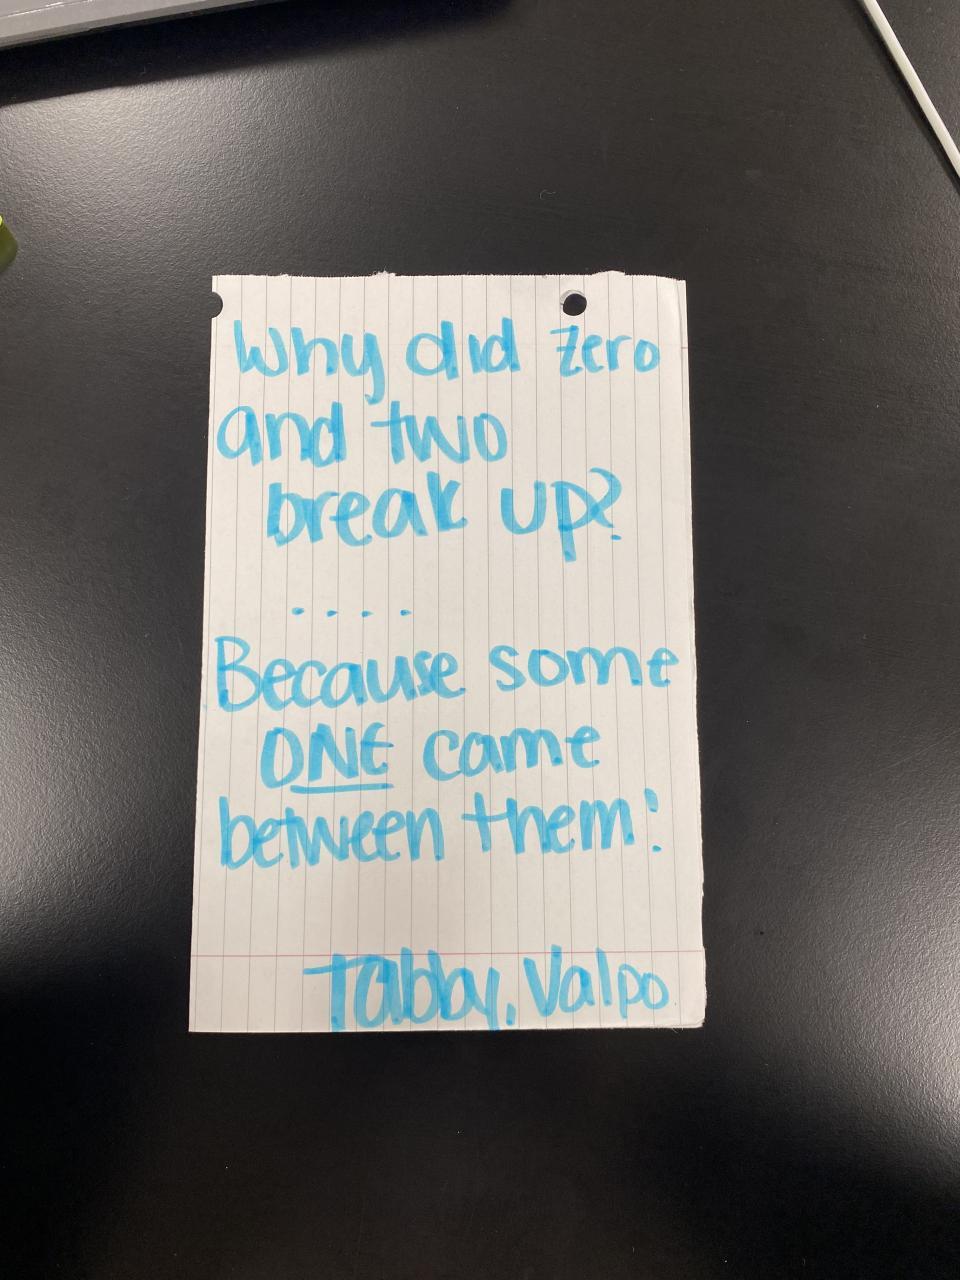 Why did zero
and two
break up?
....
Because some
ONE came
between them!
Tabby, Valpo